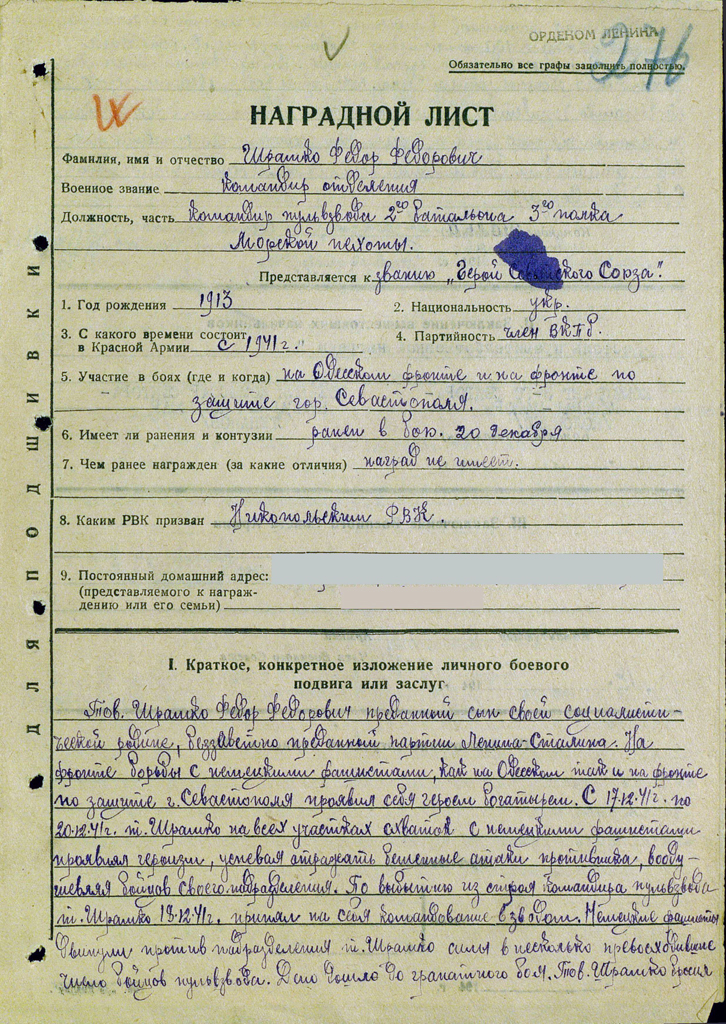 ОРДЕНОМ ЛЕНИНА
276
Обязательно все графы заполнить полностью.
НАГРАДНОЙ ЛИСТ
Фамилия, имя и отчество Шрамко Федор Федорович
Военное звание Командир отделения
Должность, часть Командир пульвзвода 2го батальона 3го полка
Морской пехоты.
Представляется к званию „Герой Советского Союза".
1. Год рождения 1913
2. Национальность укр.
3. С какого времени состоит
в Красной Армии с 1941 г.
4. Партийность член ВКПб.
5. Участие в боях (где и когда) на Одесском фронте и на фронте по
защите гор. Севастополя.
6. Имеет ли ранения и контузии ранен в бою. 20 декабря
7. Чем ранее награжден (за какие отличия) наград не имеет.
8. Каким РВК призван Никопольским РВК.
9. Постоянный домашний адрес:
(представляемого к награж-
дению или его семьи)
I. Краткое, конкретное изложение личного боевого
подвига или заслуг
Тов. Шрамко Федор Федорович преданный сын своей социалисти-
ческой родине, беззаветно преданной партии Ленина-Сталина. На
фронте борьбы с немецкими фашистами, как на Одесском так и на фронте
по защите г. Севастополя проявил себя героем богатырем. С 17.12.41г. по
20.12.41г. т. Шрамко на всех участках схваток с немецкими фашистами
проявлял героизм, успевая отражать бешенные атаки противника, вооду-
шевляя бойцов своего подразделения. По выбытию из строя командира пульвзвода
т. Шрамко 19.12.41г. принял на себя командование взводом. Немецкие фашисты
двинули против подразделения т. Шрамко силы в несколько превосходившие
число бойцов пульвзвода. Дело дошло до гранатного боя. Тов. Шрамко бросил
ДЛЯ ПОДШИВКИ